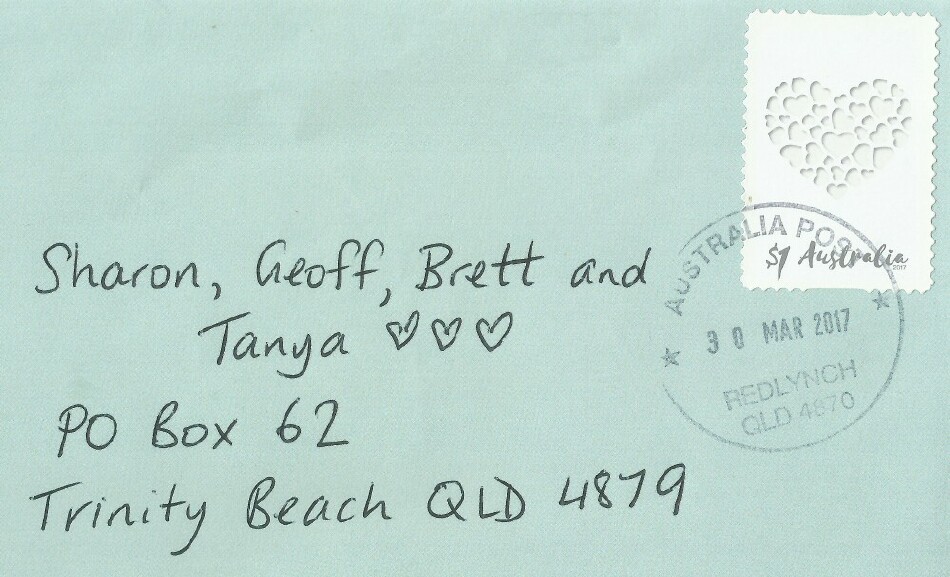 $1 Australia
2017
AUSTRALIA POST
30 MAR 2017
REDLYNCH
QLD 4870
Sharon, Geoff, Brett and
Tanya ♡♡♡
PO Box 62
Trinity Beach QLD 4879